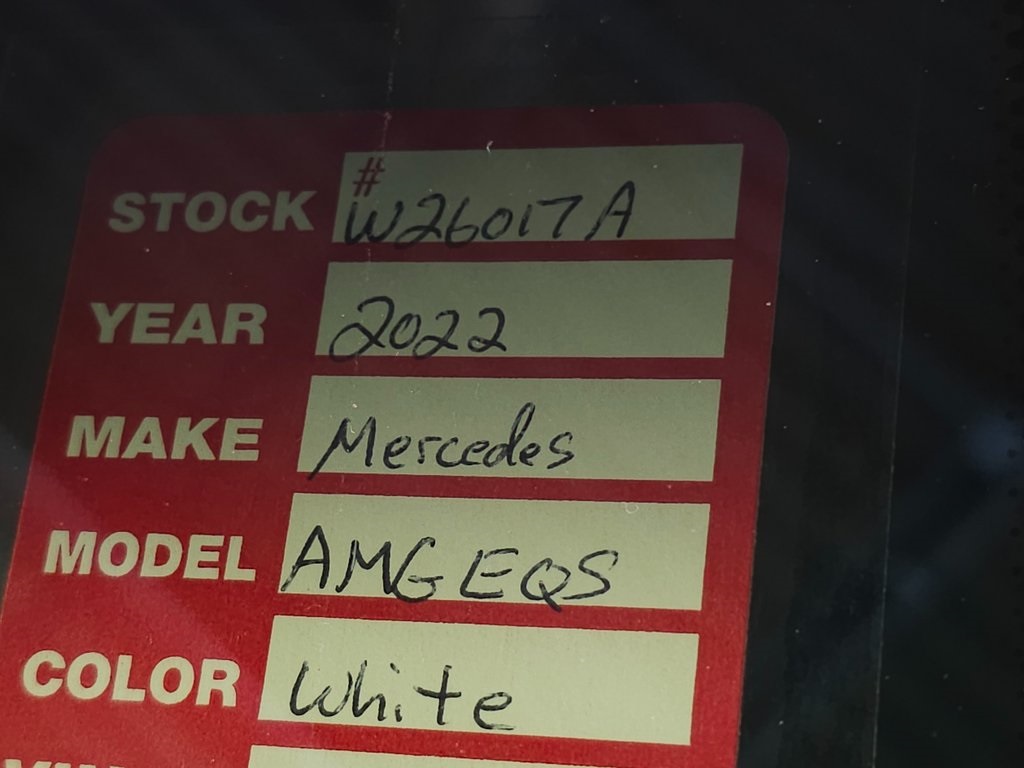 STOCK # W26017A
YEAR 2022
MAKE Mercedes
MODEL AMG EQS
COLOR White